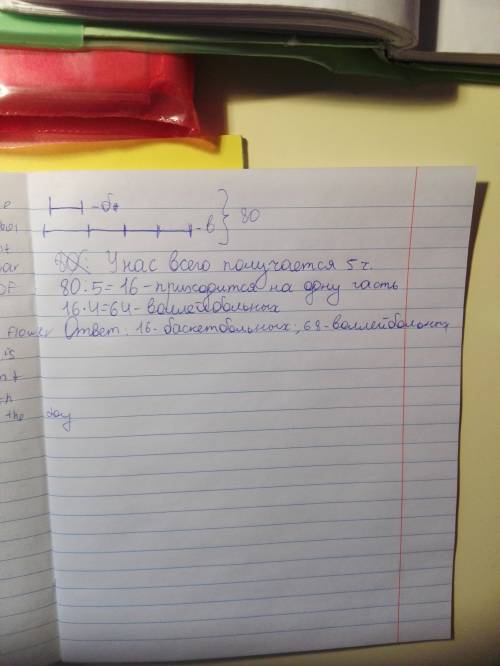 - б.
- в } 80
У нас всего получается 5 ч.
80:5=16 - приходится на одну часть
16·4=64 - воллейбольных
Ответ: 16 - баскетбольных, 64 - воллейбольных
flower
is
the day